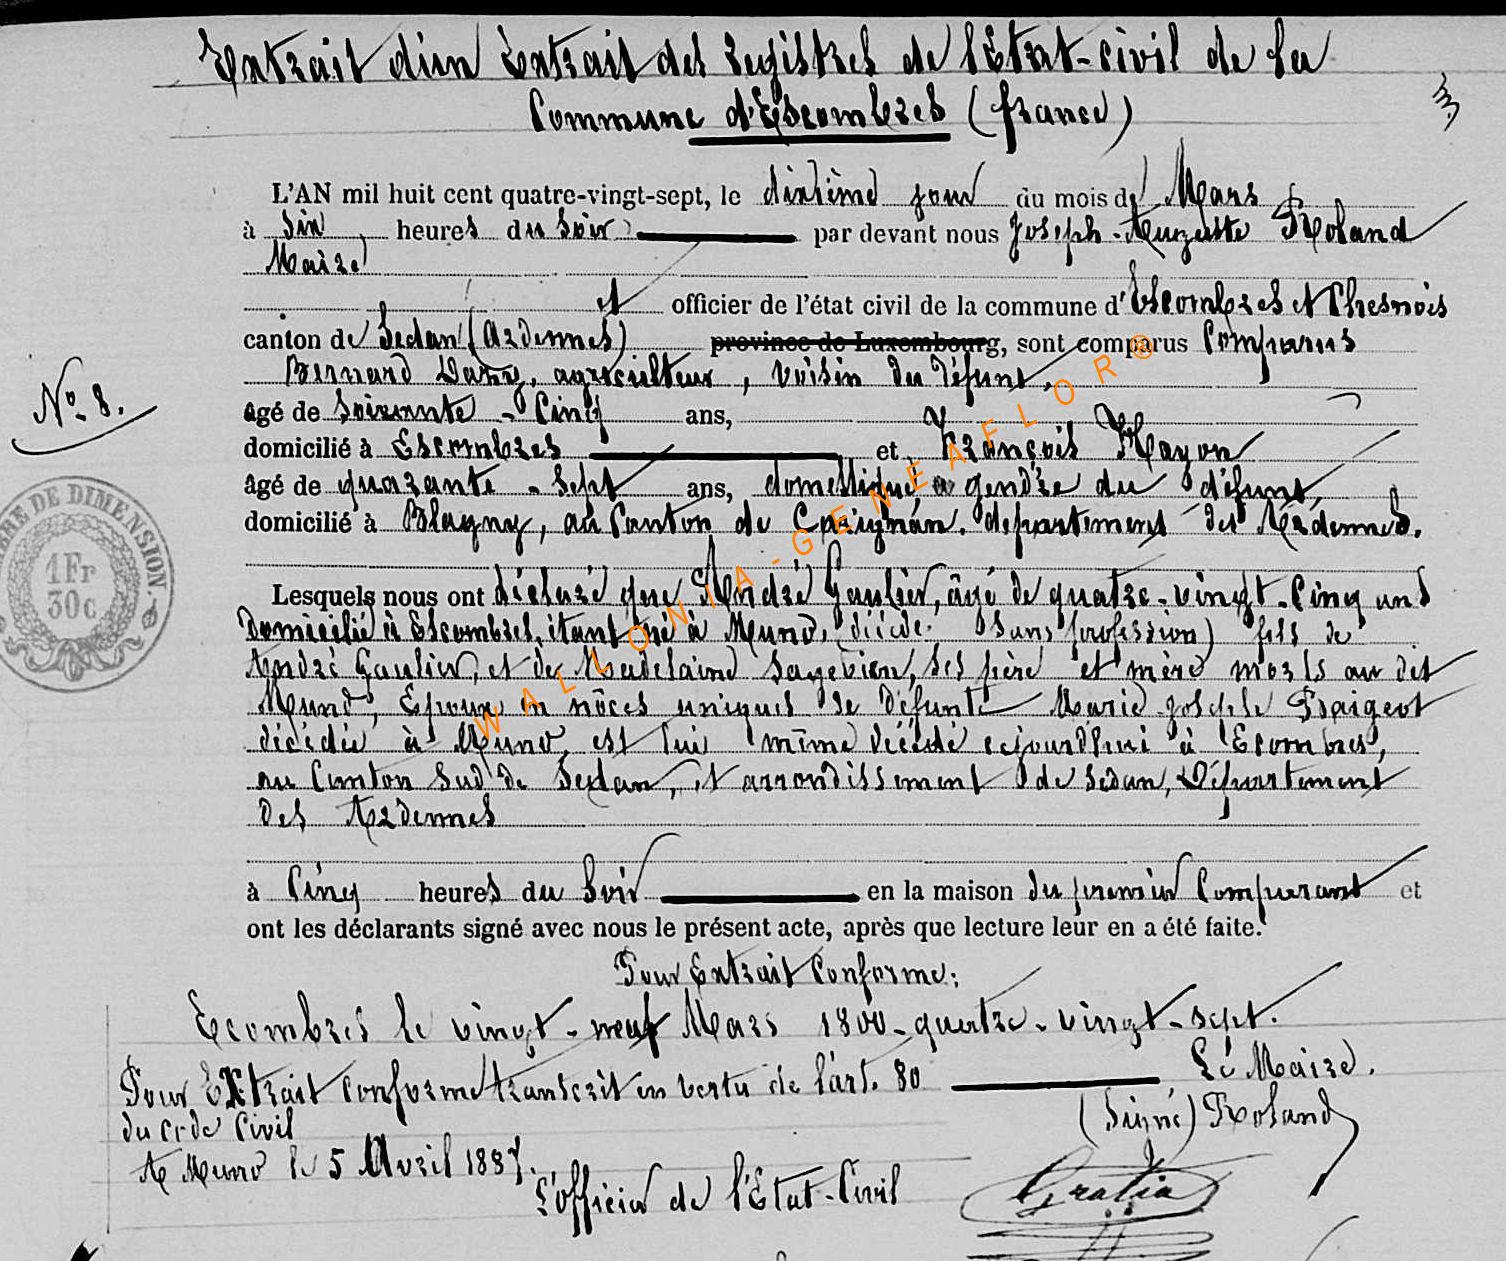 Extrait d'un Extrait des Registres de l'Etat-civil de la
Commune d'Escombres (france)
L'AN mil huit cent quatre-vingt-sept, le dixième jour du mois de Mars
à Six heures du Soir par devant nous Joseph-Auguste Roland
Maire
et officier de l'état civil de la commune d'Escombres et Chesnois
canton de Sedan (Ardennes) province de Luxembourg, sont comparus Comparus
Bernard, agriculteur, voisin du défunt,
No. 8.
âgé de Soixante-Cinq ans,
domicilié à Escombres et François Hayon
âgé de quarante-Sept ans, domestique, gendre du défunt,
domicilié à Blagny, au Canton de Carignan. département des Ardennes.
TIMBRE DE DIMENSION.
1Fr
30c
Lesquels nous ont déclaré que André Gaulier, âgé de quatre-vingt-Cinq ans
Domicilié à Escombres, étant né à Muno, (décédé Sans profession) fils de
André Gaulier, et de Madelaine, ses père et mère morts au dit
Muno, Epoux en nôces uniques de défunte Marie-Josephe Praigeot
décédée à Muno, est lui même décédé cejourd'hui à Ecombres,
au Canton Sud de Sedan, et arrondissement de Sedan, Département
des Ardennes
à Cinq heures du Soir en la maison du premier Comparant et
ont les déclarants signé avec nous le présent acte, après que lecture leur en a été faite.
Pour Extrait Conforme:
Ecombres le vingt-neuf Mars 1800-quatre-vingt-sept.
Pour Extrait Conforme transcrit en vertu de l'art. 80 Le Maire.
du code Civil (Signé) Roland
A Muno le 5 Avril 1887.
L'officier de l'Etat-Civil Gratia
WALLONIA-GENEAFLOR®